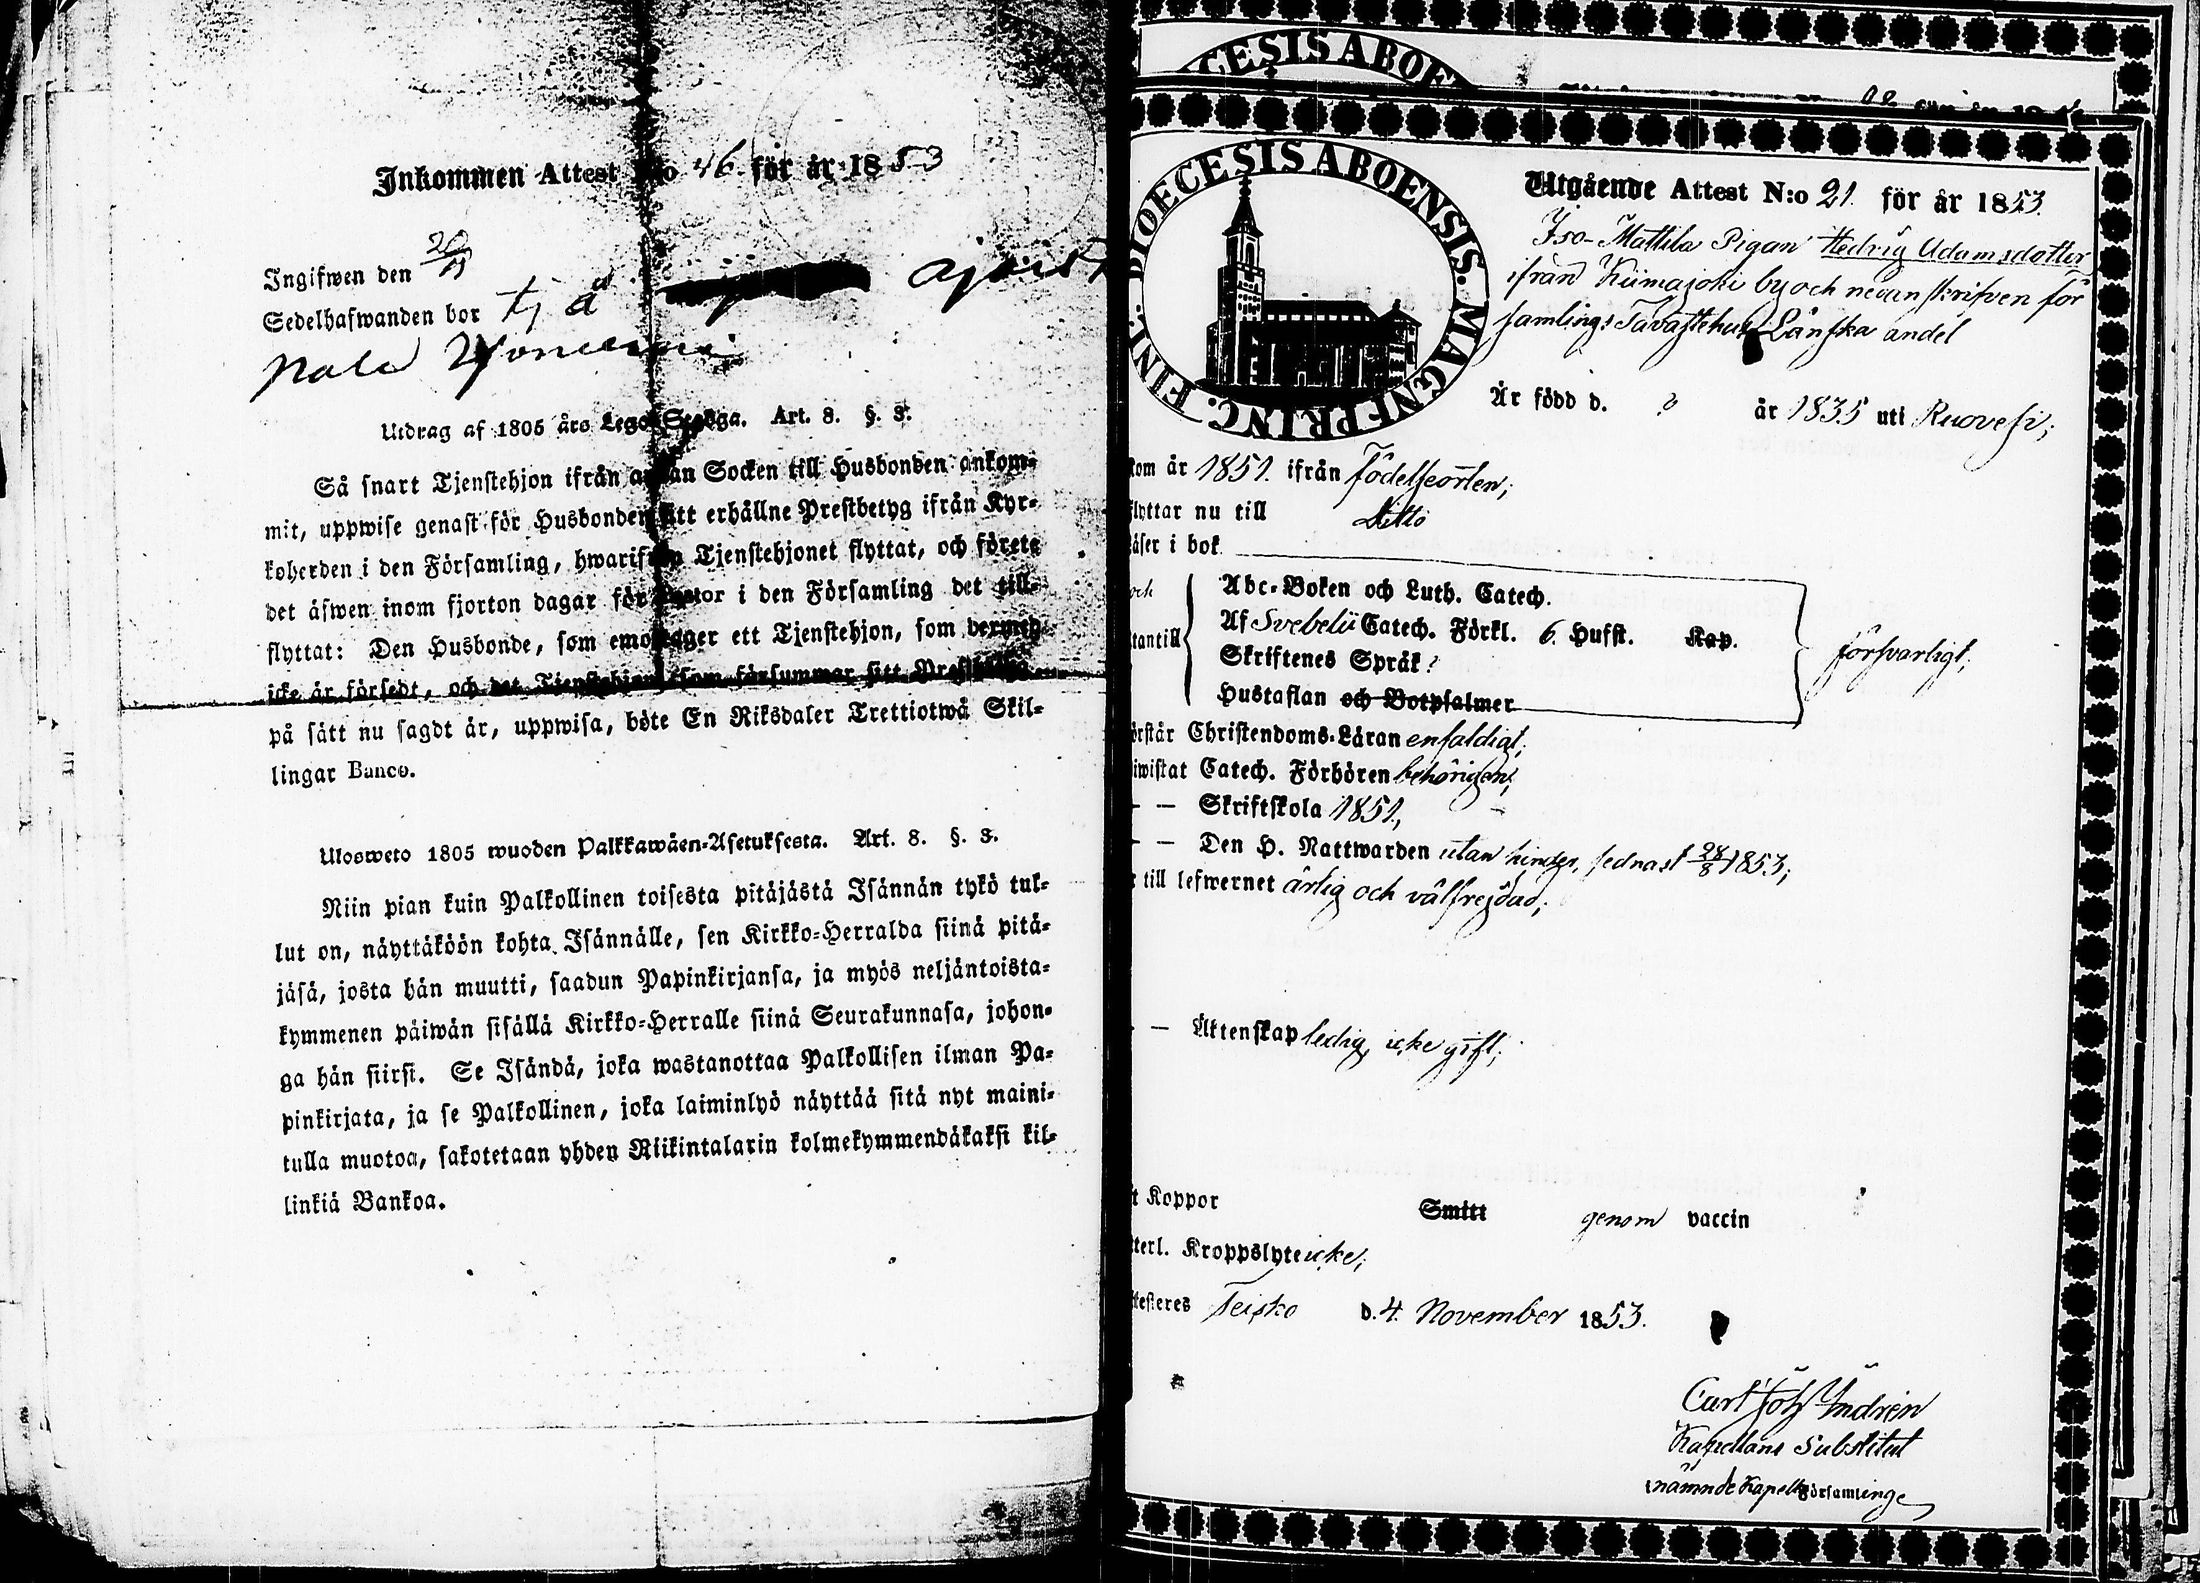 Inkommen Attest N:o 46 för år 1853
Ingifwen den 20/11
Sedelhafwanden bor
Utdrag af 1805 års Lego-Stadga. Art. 8. §. 3.
Så snart Tjenstehjon ifrån annan Socken till Husbonden ankom-
mit, uppwise genast för Husbonden sitt erhållne Prestbetyg ifrån Kyr-
koherden i den Församling, hwarifrån Tjenstehjonet flyttat, och förete
det äfwen inom fjorton dagar för Pastor i den Församling det till-
flyttat: Den Husbonde, som emottager ett Tjenstehjon, som dermed
icke är försedt, och det Tjenstehjon, som försummar sitt Prestbetyg
på sätt nu sagdt är, uppwisa, böte En Riksdaler Trettiotwå Skil-
lingar Banco.
Ulosweto 1805 wuoden Palkkawäen-Asetuksesta. Art. 8. §. 3.
Niin pian kuin Palkollinen toisesta pitäjästä Isännän tykö tul-
lut on, näyttäköön kohta Isännälle, sen Kirkko-Herralda siinä pitä-
jäsä, josta hän muutti, saadun Papinkirjansa, ja myös neljäntoista-
kymmenen päiwän sisällä Kirkko-Herralle siinä Seurakunnasa, johon-
ga hän siirsi. Se Isändä, joka wastanottaa Palkollisen ilman Pa-
pinkirjata, ja se Palkollinen, joka laiminlyö näyttää sitä nyt maini-
tulla muotoa, sakotetaan yhden Riikintalarin kolmekymmendäkaksi kil-
linkiä Bankoa.
CESIS ABOE
DIOECESIS ABOENSIS. MAGNI PRINC. FINL.
Utgående Attest N:o 21. för år 1853.
Iso-Mattila Pigan Hedvig Adamsdotter
ifrån Kiimajoki by och nedanskrifven för
samlings Tavastehus Länska andel
Är född d. ? år 1835 uti Ruovesi;
kom år 1851. ifrån Födelseorten;
flyttar nu till Ditto
läser i bok
och Abc-Boken och Luth. Catech.
utantill Af Svebelii Catech. Förkl. 6. Hufst. Kap. försvarligt;
Skriftenes Språk ?
Hustaflan och Botpsalmer
örstår Christendoms-Läran enfaldigt;
iwistat Catech. Förhören behörigen;
— — Skriftskola 1851.,
— — Den H. Nattwarden utan hinder, sednast 28/8 1853;
r till lefwernet ärlig och välfrejdad;
— — Äktenskap ledig, icke gift;
t Koppor Smitt genom vaccin
tterl. Kroppslyte icke;
ttesteres Teisko d. 4. November 1853.
Carl Joh Indrén
Kapellans Substitut
i nämnde Kapellförsamlinge